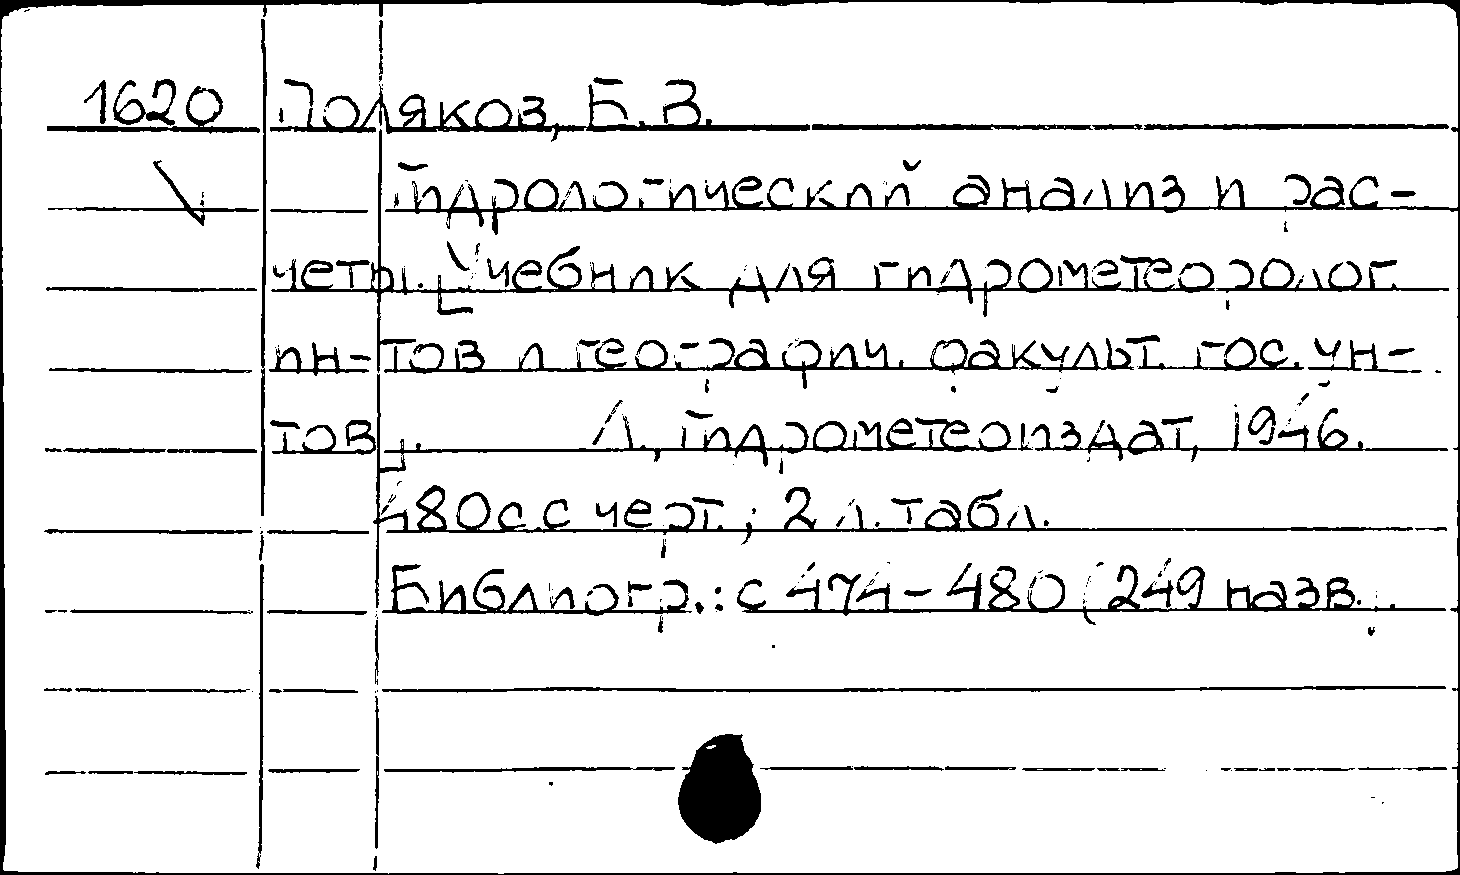 1620 Поляков, Б. В.
Гидрологический анализ и рас-
четы. [Учебник для гидрометеоролог.
ин-тов и географич. факульт. гос. ун-
тов]. Л., Гидрометеоиздат, 1946.
480с. с черт.; 2 л. табл.
Библиогр.: с 474-480 (249 назв.).